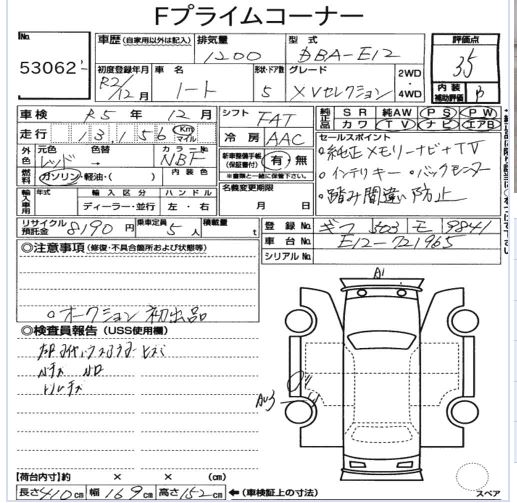 Fプライムコーナー
No.
53062
車歴 (自家用以外は記入) 排気量 型式
1200 DBA-E12
評価点
3.5
内装
補助評価 B
初度登録年月 車名 形状・ドア数 グレード 2WD・4WD
R2/12月 ノート 5 XVセレクション
車検 R5年 12月
シフト FAT
純正品 SR 純AW PS PW
革 カワ TV ナビ エアB
走行 13,156 Km マイル
冷房 AAC
セールスポイント
・純正メモリーナビ+TV
・インテリキー ・バックモニター
・踏み間違い防止
外色 元色 色替 カラーNo.
レッド → NBF
新車整備手帳 (保証書付) 有・無
※書類と一緒に保管下さい。
燃料 ガソリン・軽油・( ) 内装色
輸入車用 年式 輸入区分 ハンドル
ディーラー・並行 左・右
名義変更期限
月 日
リサイクル預託金 8190円 乗車定員 5人 積載量 t
登録No. ギフ 503 モ 9841
車台No. E12-721965
シリアルNo.
◎注意事項 (修復・不具合箇所および状態等)
・オークション初出品
◎検査員報告 (USS使用欄)
A1
AU3
【荷台内寸】約 × × (cm)
長さ 410cm 幅 169cm 高さ 152cm ←(車検証上の寸法)
スペア